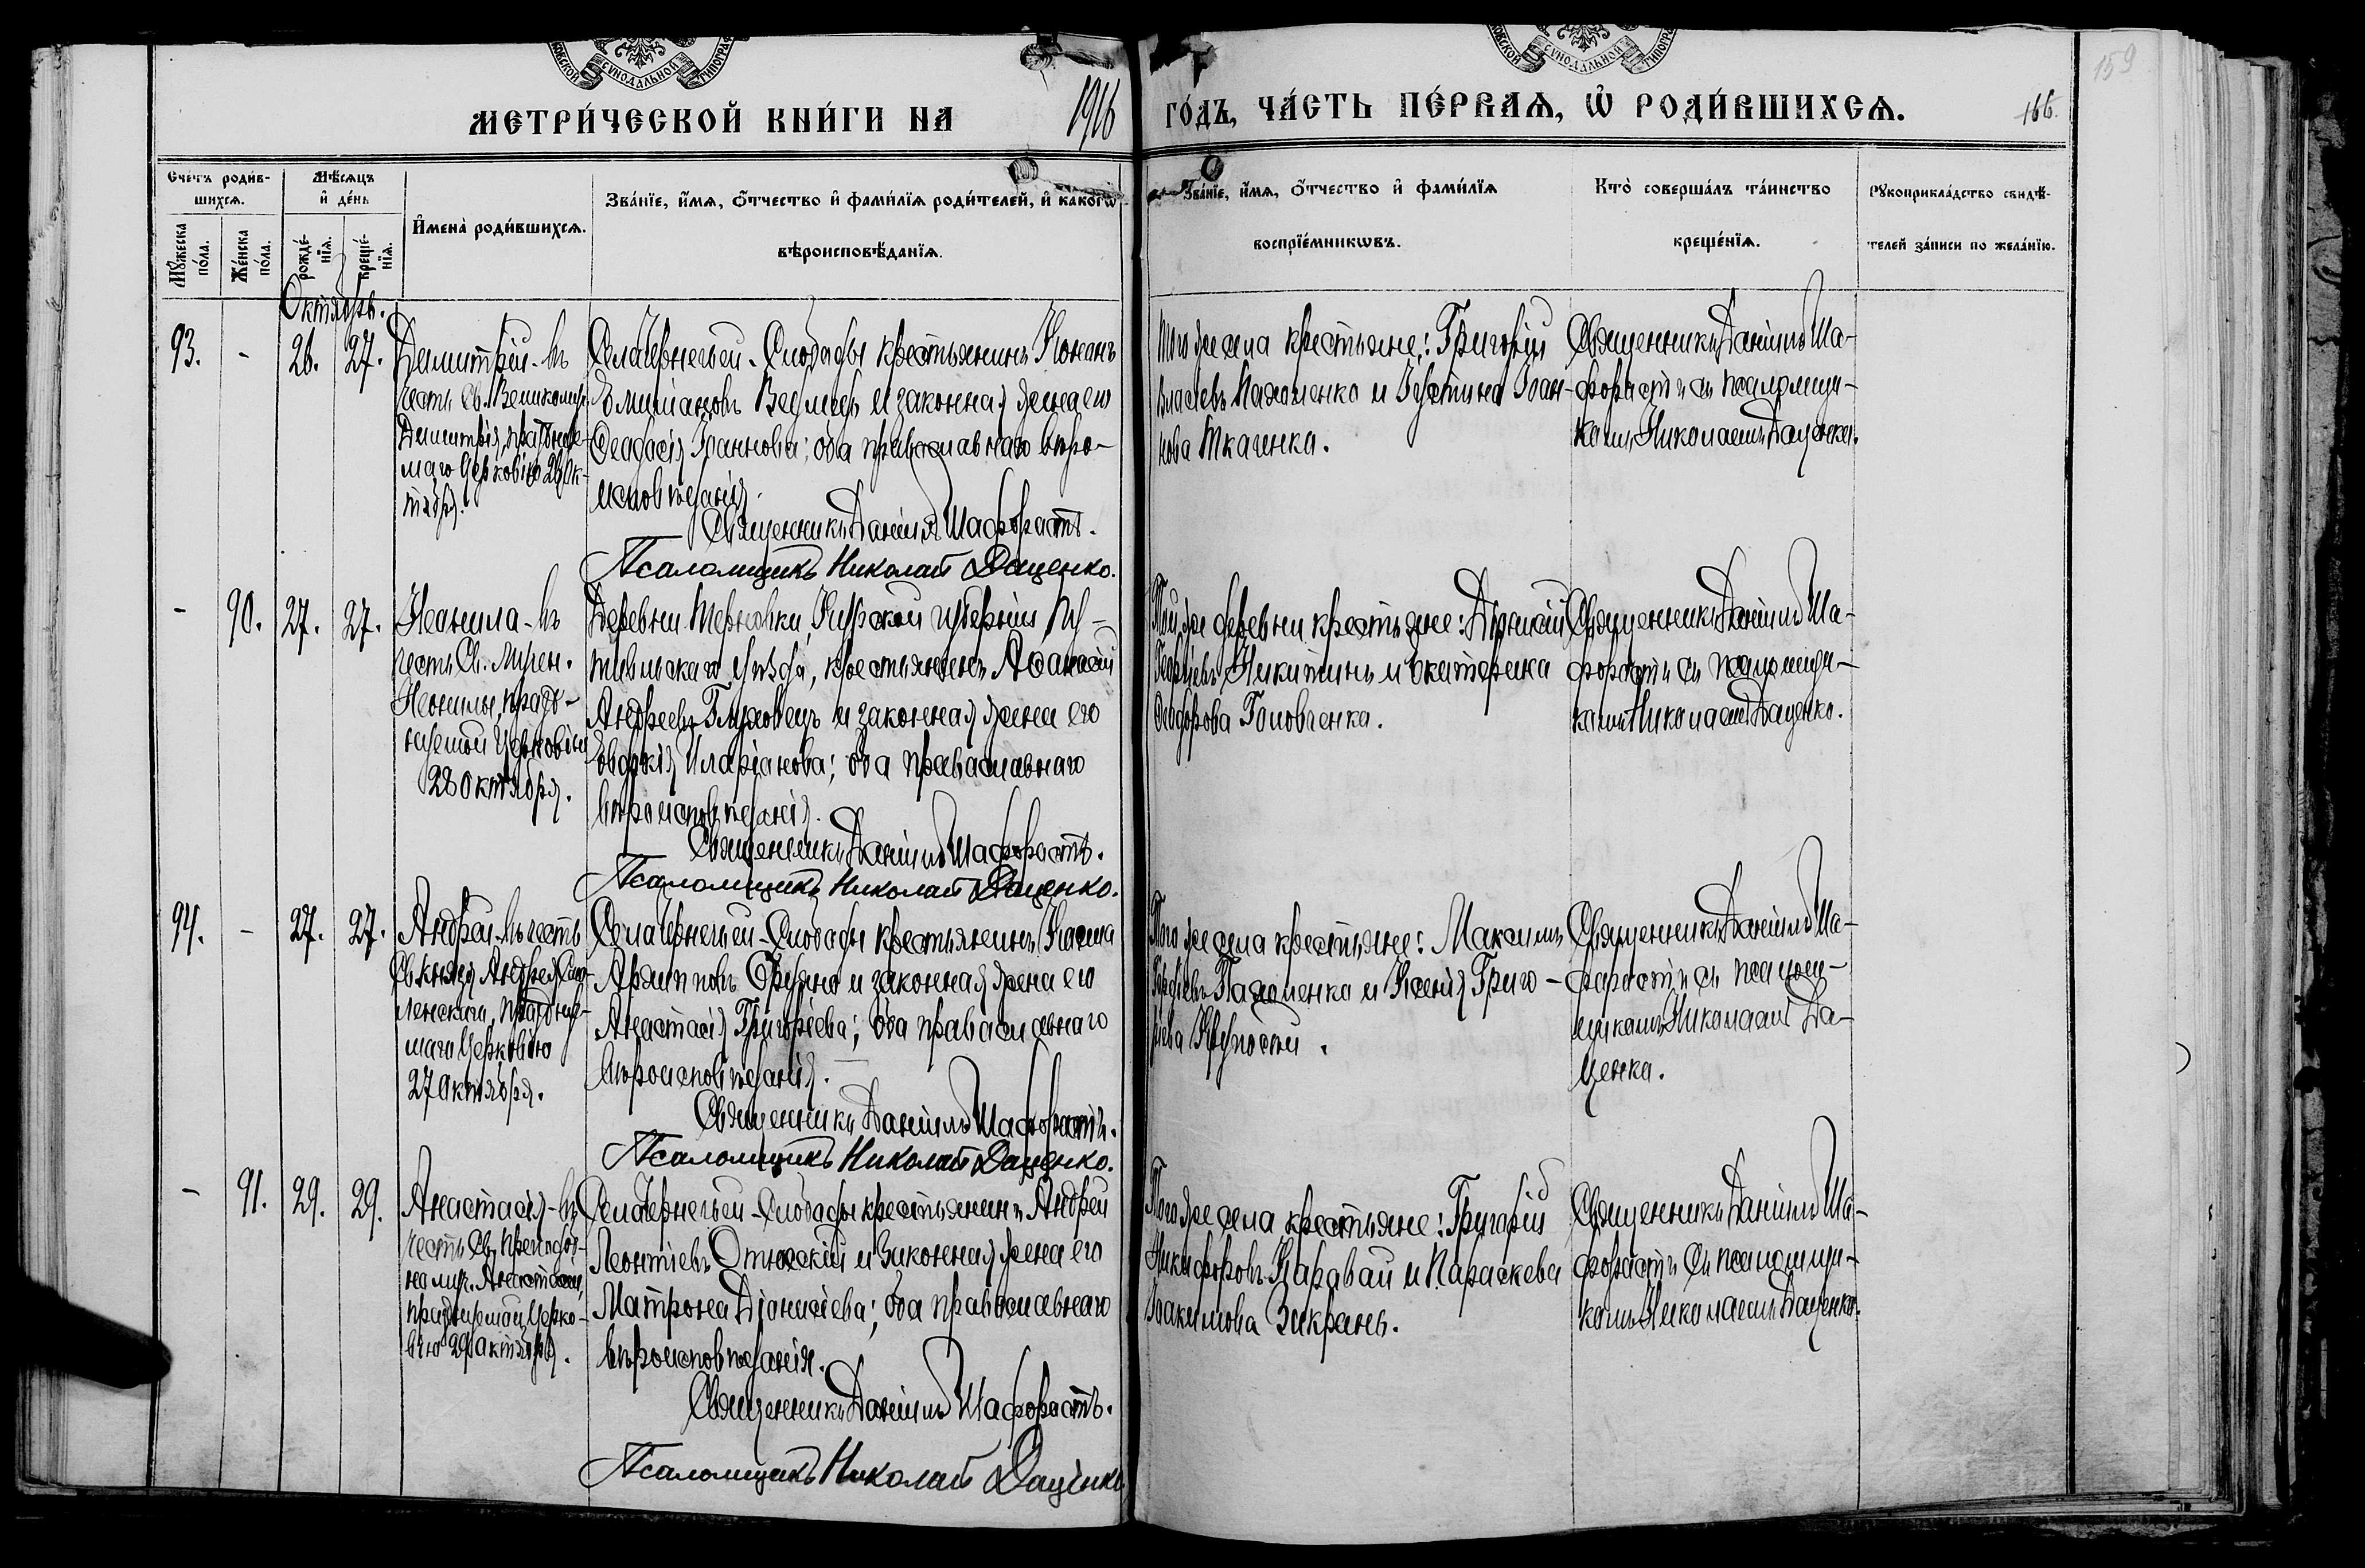 МЕТРИ́ЧЕСКОЙ КНИ́ГИ НА 1916 ГО́ДЪ, ЧА́СТЬ ПЕ́РВАЯ, Ѡ РОДИ́ВШИХСЯ.
166.
159
Сче́тъ роди́в-
шихся.
Мѣ́сяцъ
и де́нь
Мꙋ́жеска
по́ла.
Же́нска
по́ла.
рожде́-
нїя.
креще́-
нїя.
Имена̀ роди́вшихся.
Зва́нїе, и́мя, о́тчество и фами́лїя роди́телей, и како́гѡ
вѣроисповѣ́данїя.
Зва́нїе, и́мя, о́тчество и фами́лїя
воспрїе́мникѡвъ.
Кто̀ соверша́лъ та́инство
креще́нїя.
Рꙋкоприкла́дство свидѣ́-
телей за́писи по жела́нїю.
Октябрь.
93.
-
26.
27.
Димитрій - въ
честь Св. Великомуч.
Димитрія, празднуе-
маго Церковію 26 Ок-
тября.
Села Чернечьей-Слободы крестьянинъ
Емиліановъ Ведмедь и законная жена его
Феодосія Іоаннова; оба православнаго вѣро-
исповѣданія.
Священникъ Даніилъ Шафоростъ.
Псаломщикъ Николай Даценко.
Того же села крестьяне: Григорій
Власіевъ Пахоменко и Іустина Іоан-
нова Ткаченко.
Священникъ Даніилъ Ша-
форостъ съ псаломщи-
комъ Николаемъ Даценко.
-
90.
27.
27.
Неонила - въ
честь Св. Мучен.
Неонилы, празд-
нуемой Церковію
28 октября.
Деревни Терновки, Курской губерніи Пу-
тивльскаго уѣзда, крестьянинъ Аѳанасій
Андреевъ Глуховецъ и законная жена его
Евдокія Иларіонова; оба православнаго
вѣроисповѣданія.
Священникъ Даніилъ Шафоростъ.
Псаломщикъ Николай Даценко.
Той же деревни крестьяне: Діонисій
Георгіевъ Никитинъ и Екатерина
Феодорова Головченко.
Священникъ Даніилъ Ша-
форостъ съ псаломщи-
комъ Николаемъ Даценко.
94.
-
27.
27.
Андрей - въ честь
Св. князя Андрея Смо-
ленскаго, празднуе-
маго Церковію
27 октября.
Села Чернечьей-Слободы крестьянинъ Косма
Архипповъ и законная жена его
Анастасія Григоріева; оба православнаго
вѣроисповѣданія.
Священникъ Даніилъ Шафоростъ.
Псаломщикъ Николай Даценко.
Того же села крестьяне: Максимъ
Георгіевъ Пахоменко и Ксенія Григо-
ріева
Священникъ Даніилъ Ша-
форостъ съ псалом-
щикомъ Николаемъ Да-
ценко.
-
91.
29.
29.
Анастасія - въ
честь Св. Преподоб-
номуч. Анастасіи,
празднуемой Церко-
вію 29 октября.
Села Чернечьей-Слободы крестьянинъ Андрей
Леонтіевъ и законная жена его
Матрона Діонисіева; оба православнаго
вѣроисповѣданія.
Священникъ Даніилъ Шафоростъ.
Псаломщикъ Николай Даценко.
Того же села крестьяне: Григорій
Никифоровъ Каравай и Параскева
Іоакимова
Священникъ Даніилъ Ша-
форостъ съ псаломщи-
комъ Николаемъ Даценко.